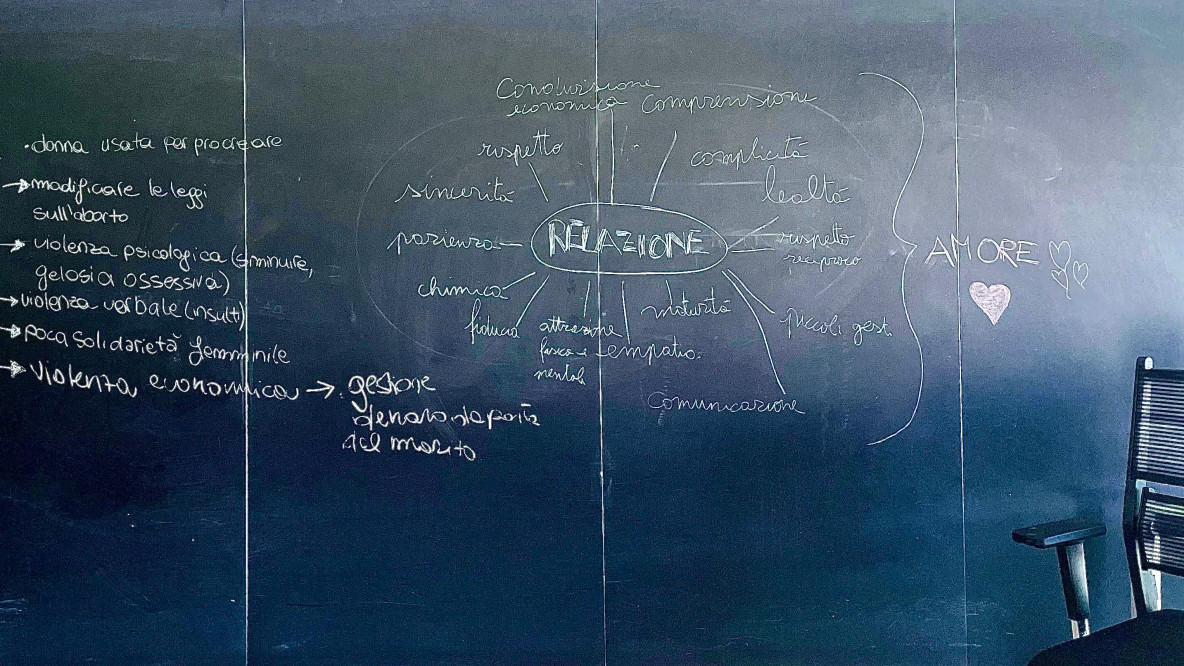 ·donna usata per procreare
→modificare le leggi
sull'aborto
→ violenza psicologica (sminuire,
gelosia ossessiva)
→violenza verbale (insulti)
→poca solidarietà femminile
→ violenza economica → gestione
denaro da parte
del marito
Condivisione
economica
comprensione
rispetto
complicità
sincerità
lealtà
pazienza
RELAZIONE
rispetto
reciproco
chimica
fiducia
attrazione
fisica e
mentale
empatia
maturità
piccoli gesti
comunicazione
AMORE